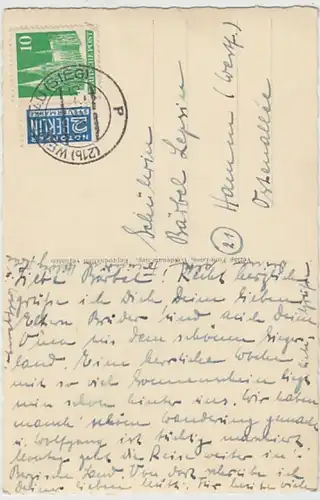 10
DEUTSCHE POST
(SIEG)
(21b) WE
P
2 NOTOPFER
BERLIN
STEUERMARKE
Schülerin
Bärbel
Hamm (Westf.)
Ostenallee
21
Liebe Bärbel! Recht herzliche
grüße ich Dich Deine lieben
Eltern Brüder und auch Deine
Oma aus dem schönen Sieger-
land. Eine herrliche Woche
mit so viel Sonnenschein liegt
nun schon hinter uns. Wir haben
manch schöne Wanderung gemacht
u. Wolfgang ist tüchtig marschiert
geht die Reise weiter ins
Bergische Land. Von dort schreibe ich
Deiner lieben Mutti. Für heute